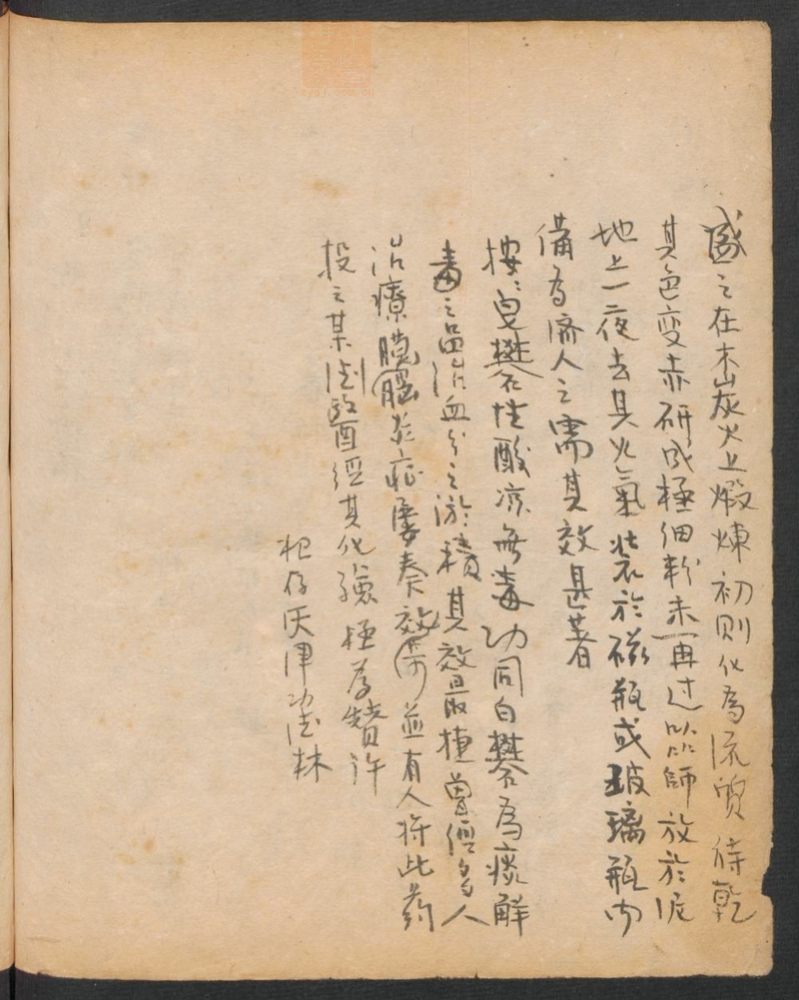 盛之在木炭火上煅煉初則化為流質待乾
其色变赤研成極细粉末再过篩放於泥
地上一夜去其火氣装於磁瓶或玻璃瓶内
備為濟人之需其效甚著
按:皂礬性酸凉無毒功同白礬為痰解
毒之品治血分之淤積其效最捷曾經多人
治療臌脹於症屡奏效並有人将此药
投之某国醫經其化驗極為贊许
天津功德林